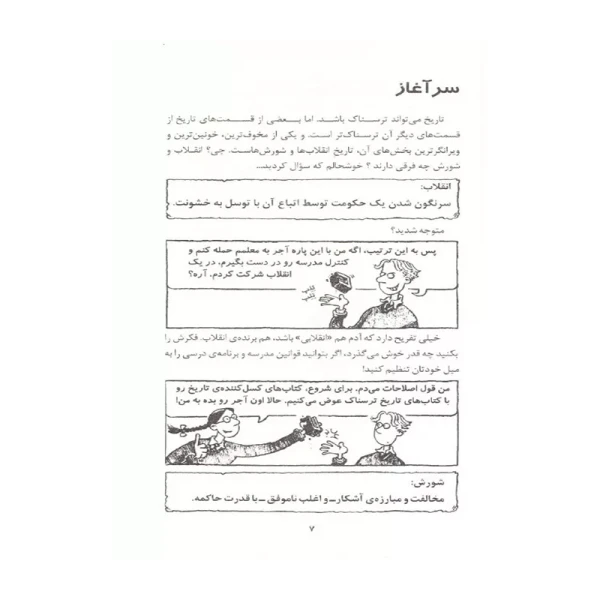 سرآغاز
تاریخ می‌تواند ترسناک باشد. اما بعضی از قسمت‌های تاریخ از
قسمت‌های دیگر آن ترسناک‌تر است. و یکی از مخوف‌ترین، خونین‌ترین و
ویرانگرترین بخش‌های آن، تاریخ انقلاب‌ها و شورش‌هاست. چی؟ انقلاب و
شورش چه فرقی دارند؟ خوشحالم که سؤال کردید...
انقلاب:
سرنگون شدن یک حکومت توسط اتباع آن با توسل به خشونت.
متوجه شدید؟
پس به این ترتیب، اگه من با این پاره آجر به معلمم حمله کنم و
کنترل مدرسه رو در دست بگیرم، در یک
انقلاب شرکت کردم. آره؟
خیلی تفریح دارد که آدم هم «انقلابی» باشد، هم برنده‌ی انقلاب. فکرش را
بکنید چه قدر خوش می‌گذرد، اگر بتوانید قوانین مدرسه و برنامه‌ی درسی را به
میل خودتان تنظیم کنید!
من قول اصلاحات می‌دم. برای شروع، کتاب‌های کسل‌کننده‌ی تاریخ رو
با کتاب‌های تاریخ ترسناک عوض می‌کنیم. حالا اون آجر رو بده به من!
شورش:
مخالفت و مبارزه‌ی آشکار ــ و اغلب ناموفق ــ با قدرت حاکمه.
۷